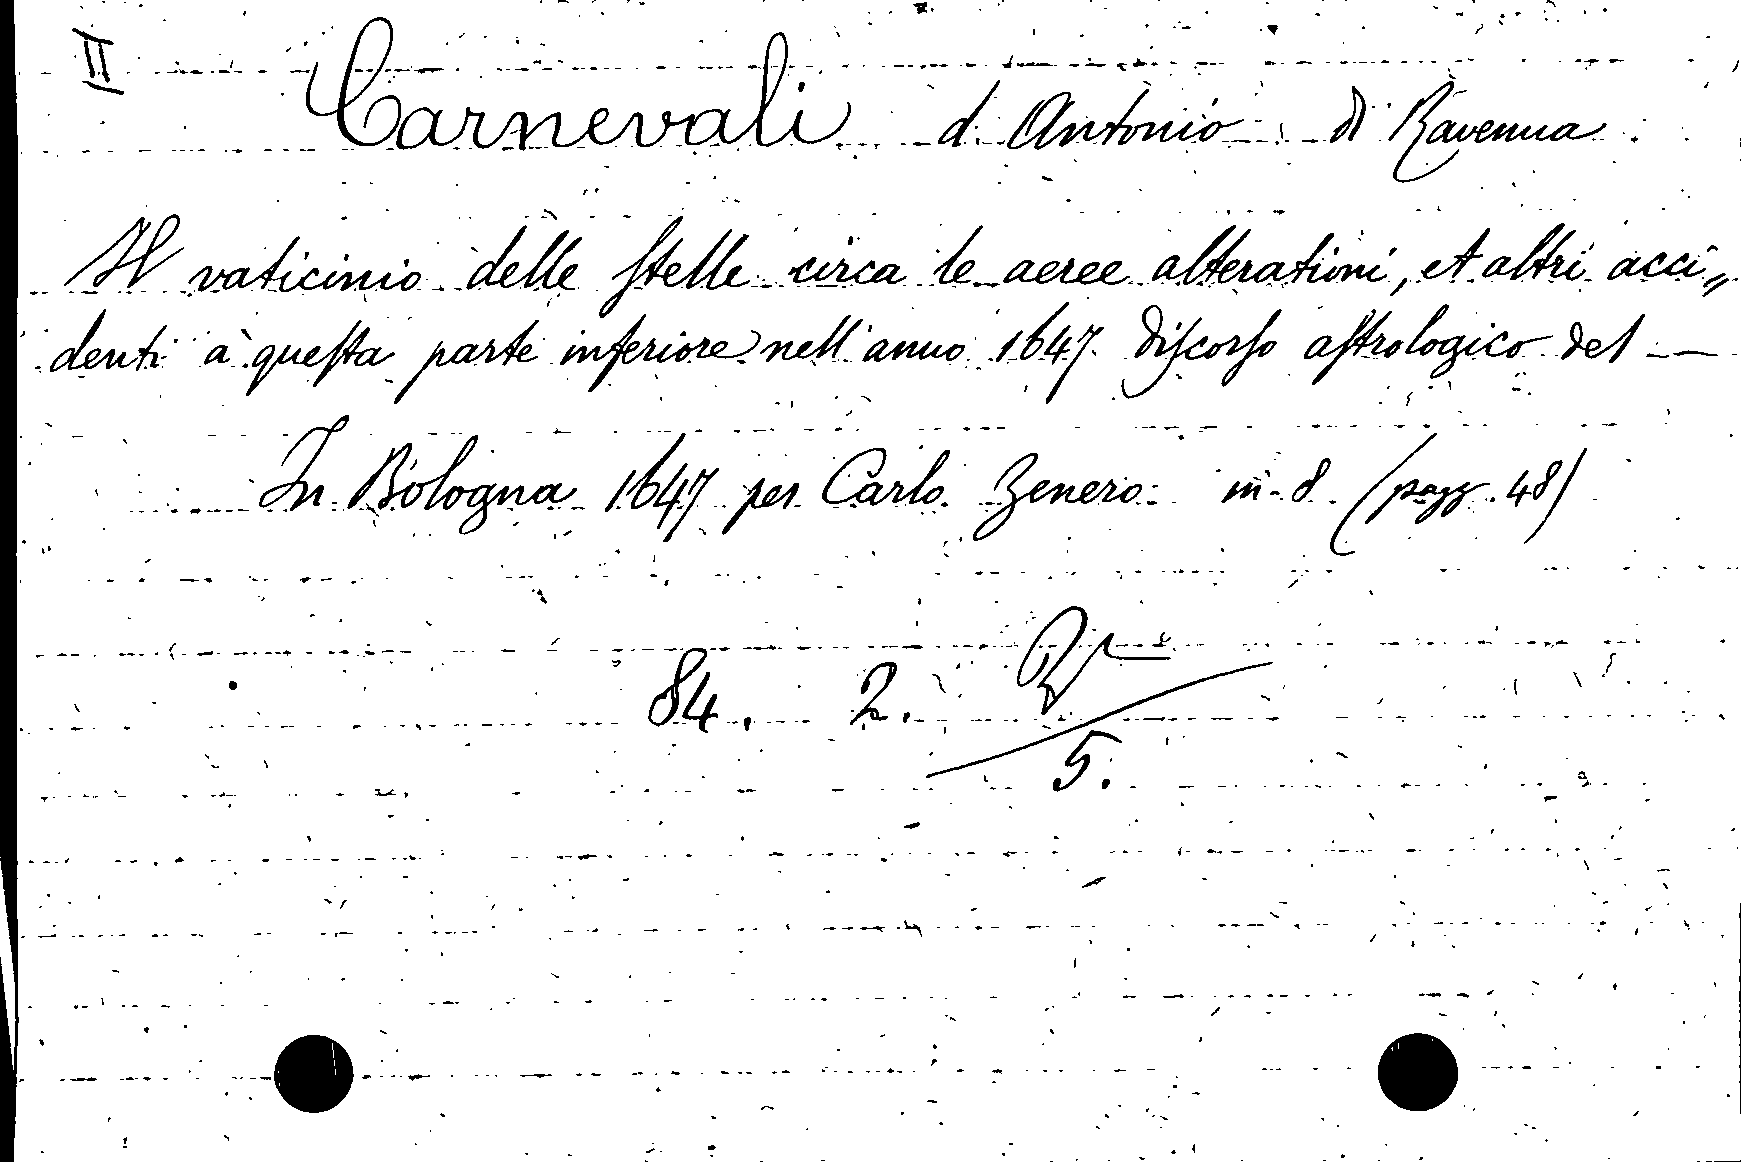 II
Carnevali d. Antonio di Ravenna
Il vaticinio delle ſtelle circa le aeree alterationi, et altri acci„
denti à queſta parte inferiore nell'anno 1647. Diſcorſo aſtrologico del —
In Bologna 1647 per Carlo Zenero. in-8 (pagg. 48)
84. 2.
5.